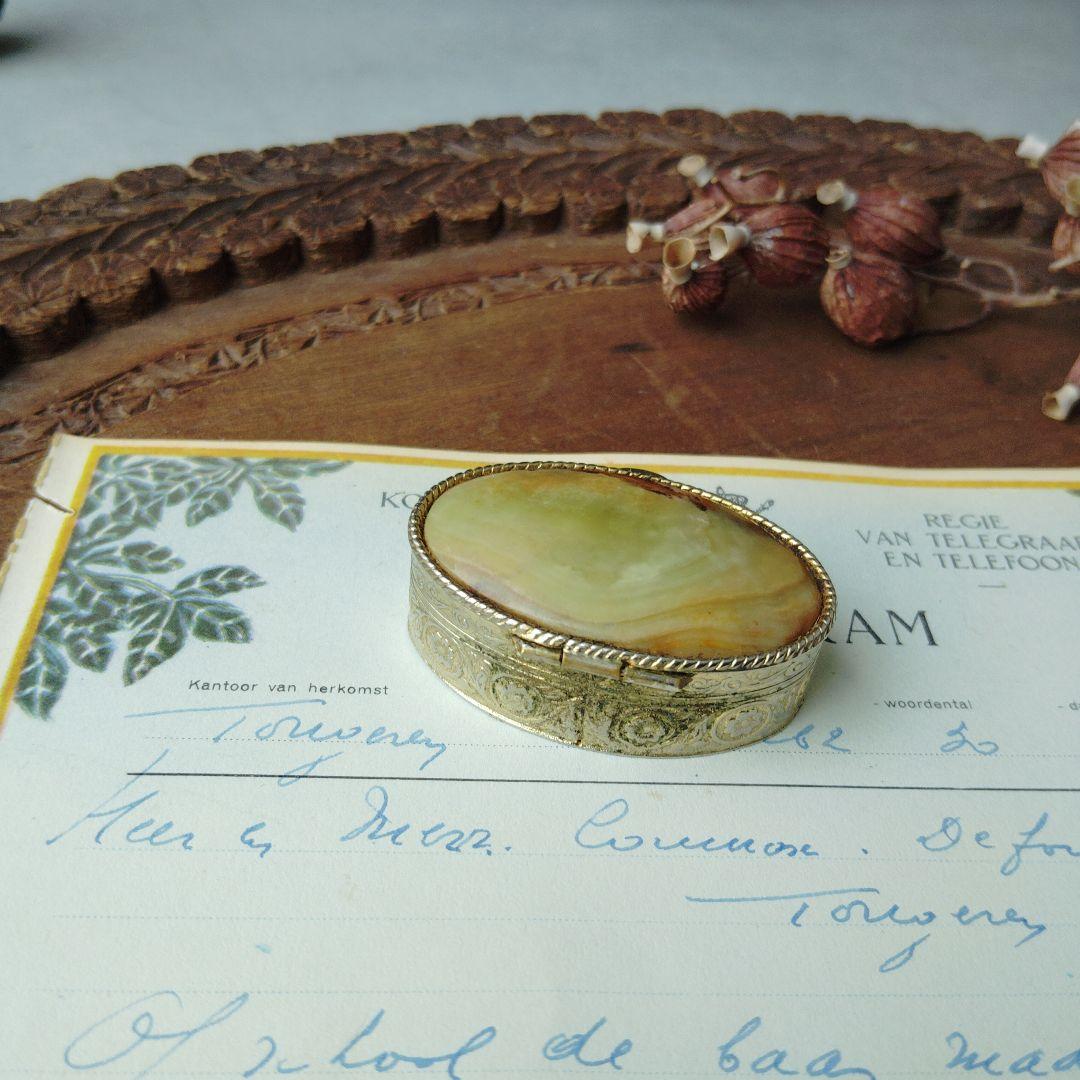 KO
REGIE
VAN TELEGRAA
EN TELEFOON
RAM
Kantoor van herkomst
- woordental
- da
Tongeren 62 30
Heer en Mevr. Defo
Tongeren
Of school de baas maa